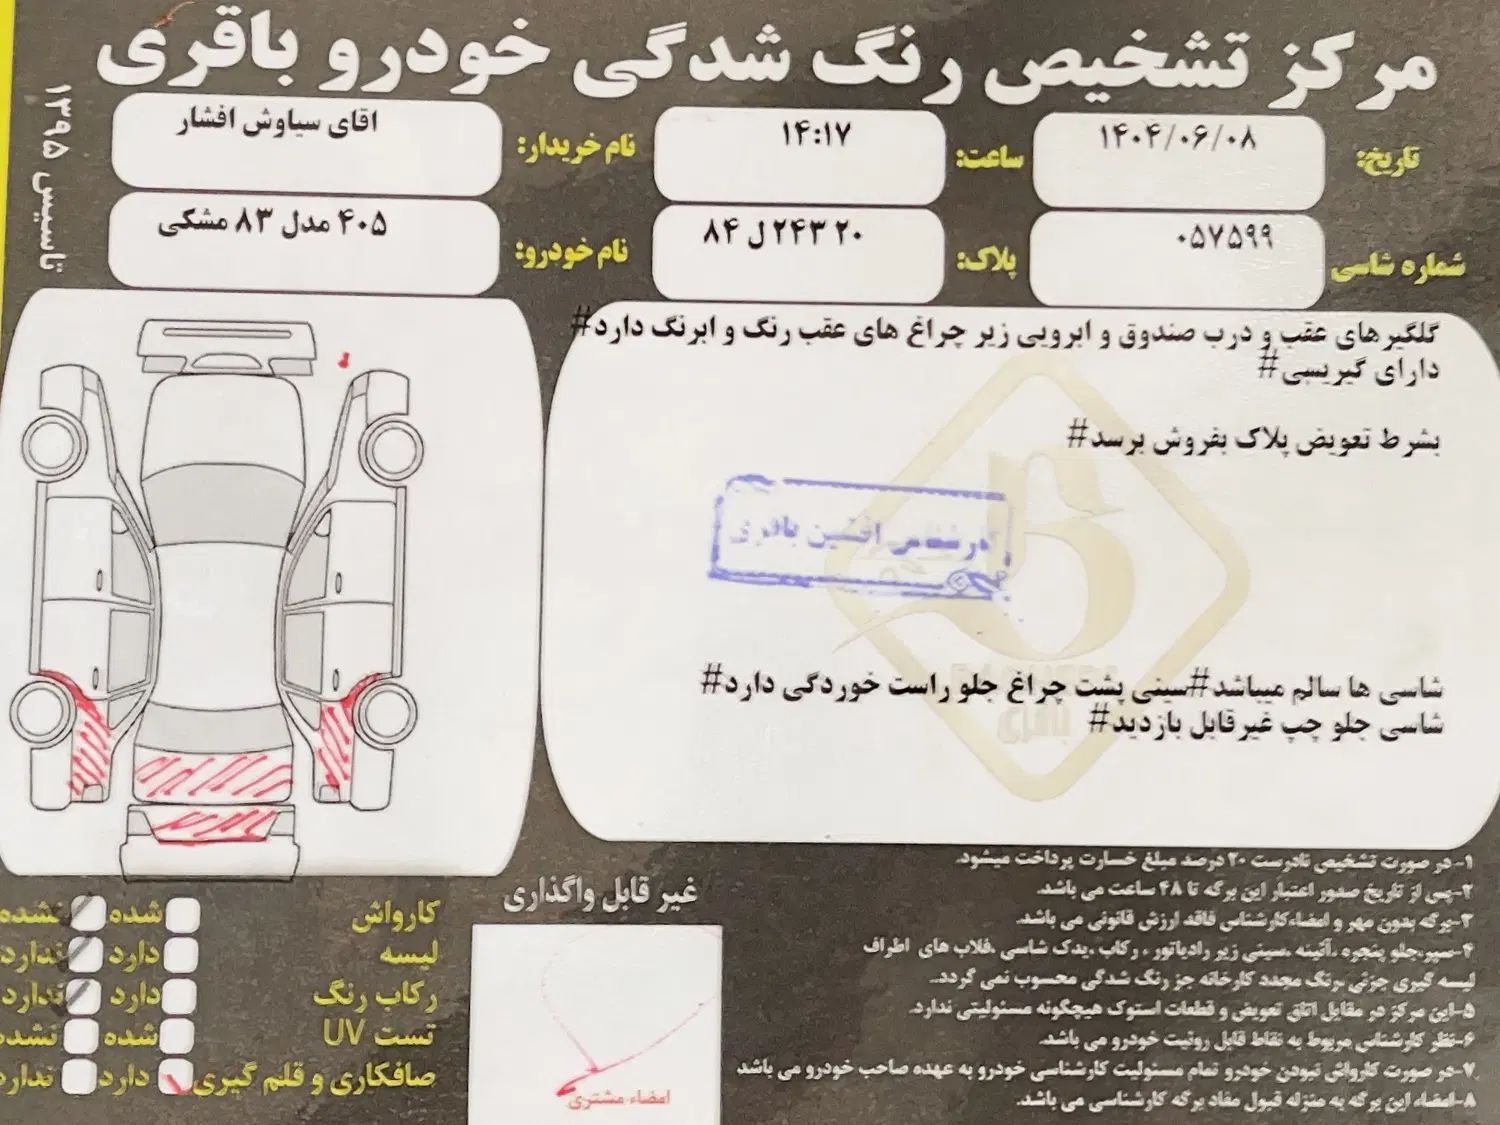 مرکز تشخیص رنگ شدگی خودرو باقری
تاسیس ۱۳۹۵
تاریخ: ۱۴۰۴/۰۶/۰۸
ساعت: ۱۴:۱۷
نام خریدار: اقای سیاوش افشار
شماره شاسی ۰۵۷۵۹۹
پلاک: ۲۰ ۲۴۳ ل ۸۴
نام خودرو: ۴۰۵ مدل ۸۳ مشکی
گلگیرهای عقب و درب صندوق و ابرویی زیر چراغ های عقب رنگ و ابرنگ دارد#
دارای گیریسی#
بشرط تعویض پلاک بفروش برسد#
کارشناس افشین باقری
شاسی ها سالم میباشد#سینی پشت چراغ جلو راست خوردگی دارد#
شاسی جلو چپ غیرقابل بازدید#
باقری
۱-در صورت تشخیص نادرست ۲۰ درصد مبلغ خسارت پرداخت میشود.
۲-پس از تاریخ صدور اعتبار این برگه تا ۴۸ ساعت می باشد.
۳-برگه بدون مهر و امضاءکارشناس فاقد ارزش قانونی می باشد.
۴-سپر،جلو پنجره ،آئینه ،سینی زیر رادیاتور ، رکاب ،یدک شاسی ،قلاب های اطراف
لیسه گیری جزئی ،رنگ مجدد کارخانه جز رنگ شدگی محسوب نمی گردد.
۵-این مرکز در مقابل اتاق تعویض و قطعات استوک هیچگونه مسئولیتی ندارد.
۶-نظر کارشناس مربوط به نقاط قابل روئیت خودرو می باشد.
۷-در صورت کارواش نبودن خودرو تمام مسئولیت کارشناسی خودرو به عهده صاحب خودرو می باشد.
۸-امضاء این برگه به منزله قبول مفاد برگه کارشناسی می باشد.
غیر قابل واگذاری
امضاء مشتری
کارواش شده نشده
لیسه دارد ندارد
رکاب رنگ دارد ندارد
تست UV شده نشده
صافکاری و قلم گیری دارد ندارد